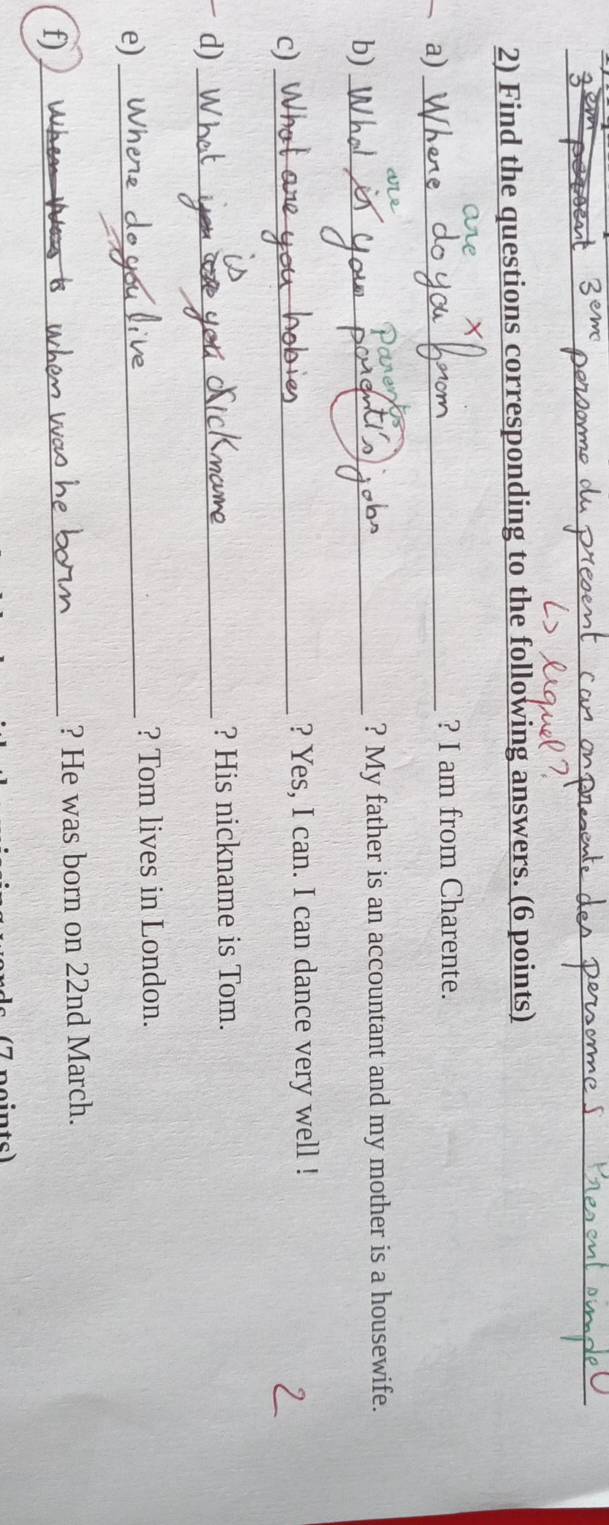 3em personne du present car on presente des personnes Present simple
↳ lequel?
2) Find the questions corresponding to the following answers. (6 points)
are x
a) Where do you from ? I am from Charente.
are Parents
b) What is your parent's jobs ? My father is an accountant and my mother is a housewife.
c) What are you hobies ? Yes, I can. I can dance very well !
2
is
d) What you nickname ? His nickname is Tom.
e) Where do you live ? Tom lives in London.
f) when was he born ? He was born on 22nd March.
(7 points)